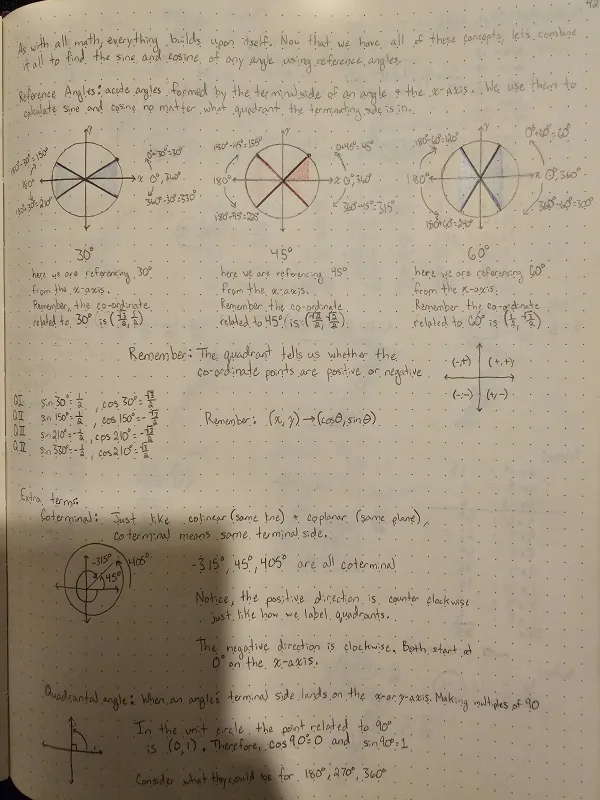 42
As with all math, everything builds upon itself. Now that we have all of these concepts, lets combine
it all to find the sine and cosine of any angle using reference angles.
Reference Angles: acute angles formed by the terminal side of an angle + the x-axis. We use them to
calculate sine and cosine no matter what quadrant the terminating side is in.
180°-30°=150°
y
0°+30°=30°
180°
x 0°, 360°
180°+30°=210°
360°-30°=330°
180°-45°=135°
y
0+45°=45°
180°
x 0°, 360°
180°+45°=225°
360°-45°=315°
180°-60°=120°
y
0°+60°=60°
180°
x 0°, 360°
180°+60°=240°
360°-60°=300°
30°
here we are referencing 30°
from the x-axis.
Remember, the co-ordinate
related to 30° is (√3/2, 1/2)
45°
here we are referencing 45°
from the x-axis.
Remember the co-ordinate
related to 45° is (√2/2, √2/2)
60°
here we are referencing 60°
from the x-axis.
Remember the co-ordinate
related to 60° is (1/2, √3/2)
Remember: The quadrant tells us whether the
co-ordinate points are positive or negative
(-,+) (+,+)
(-,-) (+,-)
QI sin30°=1/2, cos30°=√3/2
QII sin150°=1/2, cos150°=-√3/2
QIII sin210°=-1/2, cos210°=-√3/2
QIV sin330°=-1/2, cos210°=√3/2
Remember: (x,y)→(cosθ,sinθ)
Extra terms:
Coterminal: Just like colinear (same line) + coplanar (same plane),
coterminal means same terminal side.
-315°
405°
45°
-315°, 45°, 405° are all coterminal
Notice, the positive direction is counter clockwise
just like how we label quadrants.
The negative direction is clockwise. Both start at
0° on the x-axis.
Quadrantal angle: When an angle's terminal side lands on the x-or y-axis. Making multiples of 90
In the unit circle, the point related to 90°
is (0,1). Therefore, cos90°=0 and sin90°=1
Consider what they would be for 180°, 270°, 360°